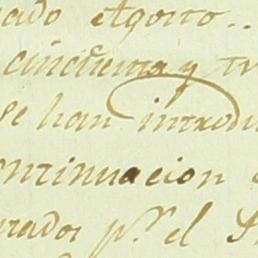 ado Agosto..
cincuenta y tr
se han introdu
ontinuacion
rados p.r el S